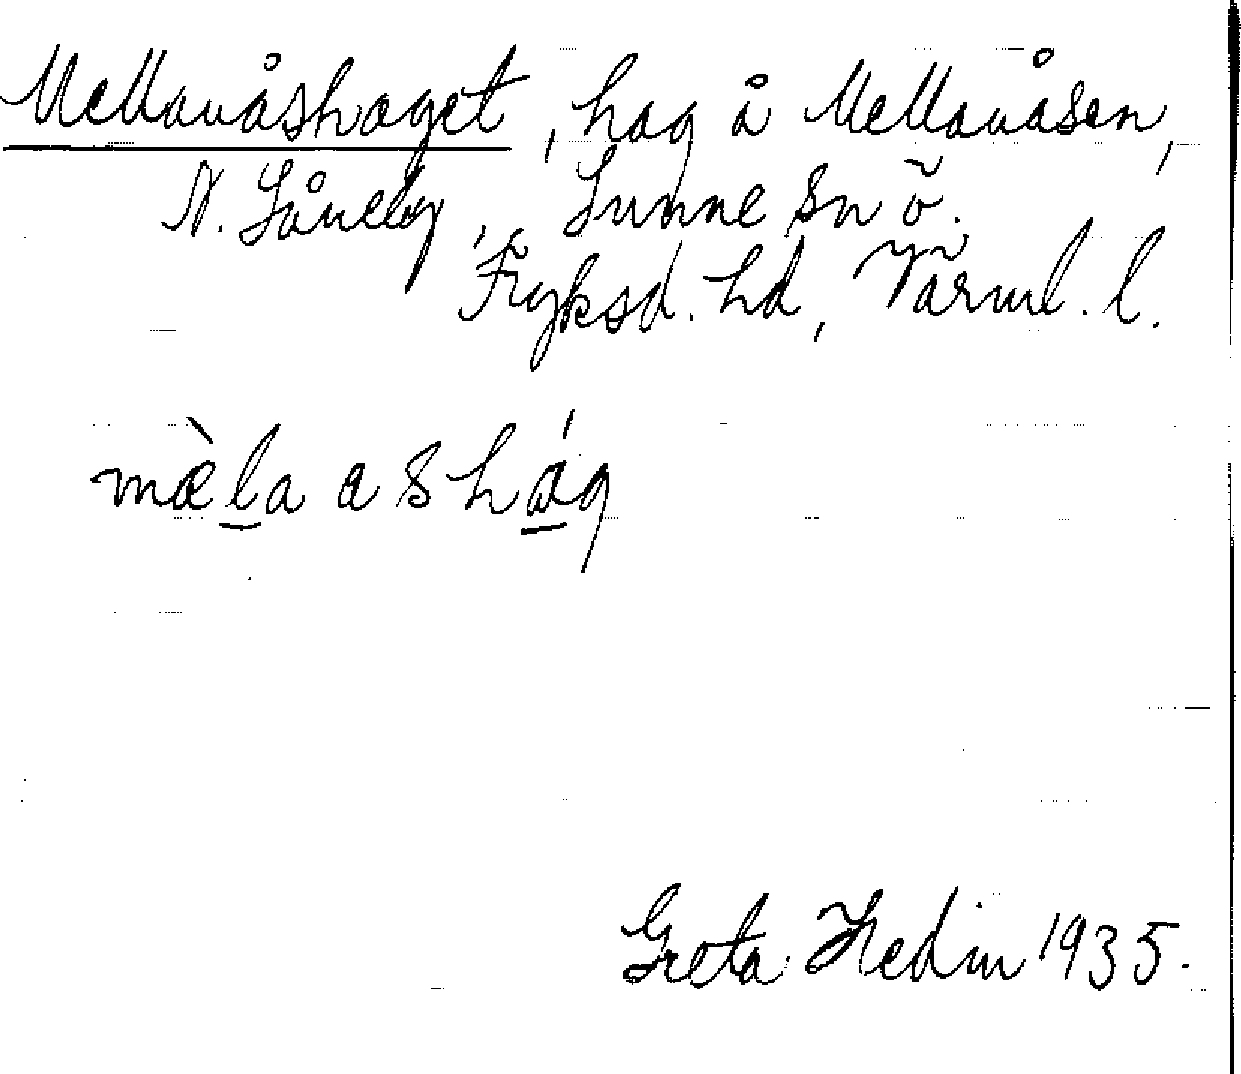 Mellanåshaget, hag å Mellanåsen,
N. Låneby, Sunne sn ö.
Fryksd. hd, Värml. l.
mæ̀la a s hág
Greta Hedin 1935.